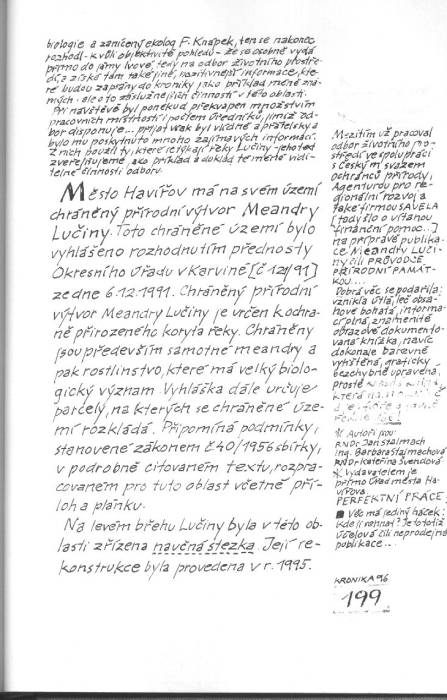 biologie a zanícený ekolog F. Knápek, ten se nakonec
rozhodl - kvůli objektivitě pohledu - že se osobně vydá
přímo do jámy lvové, tedy na odbor životního prostře-
dí, a získá tam také jiné, pozitivnější informace, kte-
ré budou zapsány do kroniky jako příklad méně zná-
mých - ale o to záslužnějších činností v této oblasti.
Při návštěvě byl poněkud překvapen množstvím
pracovních místností i počtem úředníků, jimiž od-
bor disponuje... přijat však byl vlídně a přátelsky a
bylo mu poskytnuto mnoho zajímavých informací.
Z nich použil ty, které se týkají řeky Lučiny - jeho text
zveřejňujeme, jako příklad a doklad té méně vidi-
telné činnosti odboru.
Město Havířov má na svém území
chráněný přírodní výtvor Meandry
Lučiny. Toto chráněné území bylo
vyhlášeno rozhodnutím přednosty
Okresního úřadu v Karviné [č 121/91]
ze dne 6.12.1991. Chráněný přírodní
výtvor Meandry Lučiny je určen k ochra-
ně přirozeného koryta řeky. Chráněny
jsou především samotné meandry a
pak rostlinstvo, které má velký biolo-
gický význam. Vyhláška dále určuje
parcely, na kterých se chráněné úze-
mí rozkládá. Připomíná podmínky,
stanovené zákonem č 40/1956 sbírky,
v podrobně citovaném textu, rozpra-
covaném pro tuto oblast včetně pří-
loh a plánku.
Na levém břehu Lučiny byla v této ob-
lasti zřízena naučná stezka. Její re-
konstrukce byla provedena v r. 1995.
Mezitím už pracoval
odbor životního pro-
středí ve spolupráci
s Českým svazem
ochránců přírody,
Agenturou pro re-
gionální rozvoj a
také firmou SAVELA
[tady šlo o vítanou
finanční pomoc...]
na přípravě publika-
ce Meandry Luči-
ny čili PRŮVODCE
PŘÍRODNÍ PAMÁT-
KOU...
Dobrá věc se podařila:
vznikla útlá, leč obsa-
hově bohatá, informa-
cí plná, znamenitě
obrazově dokumento-
vaná knížka, navíc
dokonale barevně
vytištěná, graficky
bezchybně upravená,
prostě
která
Autoři jsou
RNDr Jan Stalmach
ing. Barbara Stalmachová
RNDr Kateřina Švendová
Vydavatelem je
přímo Úřad města Ha-
vířova.
PERFEKTNÍ PRÁCE!
Věc má jediný háček:
Kde ji sehnat? Je to totiž
účelová čili neprodejná
publikace...
KRONIKA 96
199